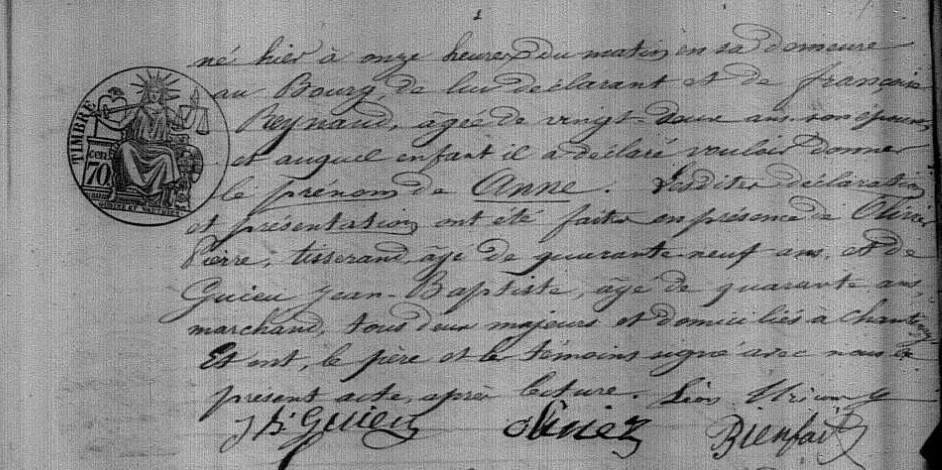 1
né hier à onze heures du matin en sa demeure
au Bourg, de lui déclarant et de françoise
Reynaud, âgée de vingt-deux ans, son épouse,
et auquel enfant il a déclaré vouloir donner
le prénom de Anne. Lesdites déclaration
et présentation ont été faites en présence de Olivier
Pierre, tisserand, âgé de quarante-neuf ans, et de
Guieu Jean-Baptiste, âgé de quarante ans,
marchand, tous deux majeurs et domiciliés à
Et ont, le père et les témoins signé avec nous le
présent acte, après lecture. Léon
J Bte Guieu Olivier Bienfait
TIMBRE
cen
70